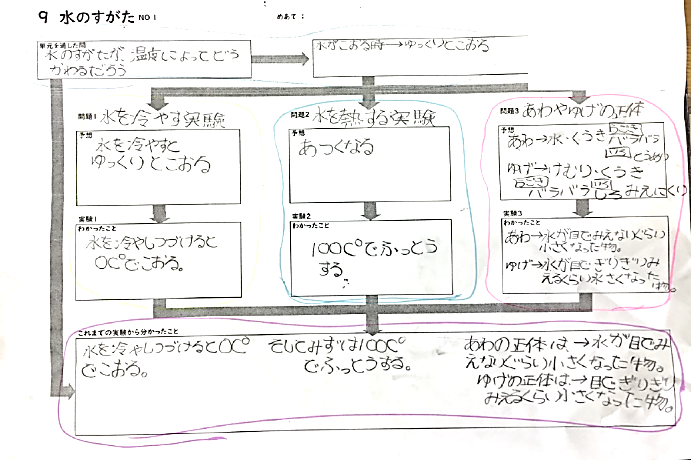 9 水のすがた NO 1
めあて:
単元を通した問
水のすがたが、温度によってどう
かわるだろう
水がこおる時→ゆっくりとこおる
問題1 水を冷やす実験
予想
水を冷やすと
ゆっくりとこおる
実験1
わかったこと
水を冷やしつづけると
0C°でこおる。
問題2 水を熱する実験
予想
あつくなる
実験2
わかったこと
100C°でふっとう
する。
問題3 あわやゆげの正体
予想
あわ→水・くうき
うごき
バラバラ
いろ
とうめい
ゆげ→けむり・くうき
うごき
バラバラ
いろ
しろ みえにくい
実験3
わかったこと
あわ→水が目でみえないくらい
小さくなった物。
ゆげ→水が目でぎりぎりみ
えるくらい小さくなった
物。
これまでの実験から分かったこと
水を冷やしつづけると0C°
でこおる。
そしてみずは100C°
でふっとうする。
あわの正体は→水が目でみ
えないぐらい小さくなった物。
ゆげの正体は→目でぎりぎり
みえるくらい小さくなった物。